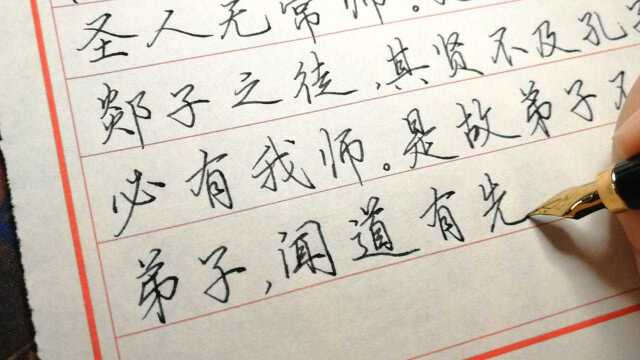 圣人无常师。
郯子之徒,其贤不及孔
必有我师。是故弟子不
弟子,闻道有先